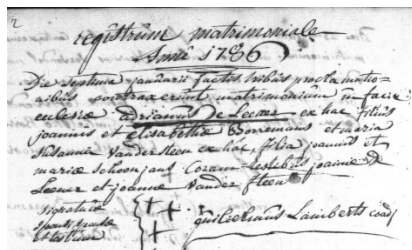 2
registrum matrimoniale
Anni 1786
Die septima januarii factis tribus proclamatio=
nibus contraxerunt matrimonium in facie
ecclesiæ adrianus De Leener ex hac filius
joannis et elisabethæ Borremans et maria
susanna vander steen ex hac filia joannis et
mariæ schoonjans Coram testibus joanne De
Leener et joanne vander steen
signatura
sponsi, sponsæ
et testium
+ + +
guilielmus Lamberts coadj